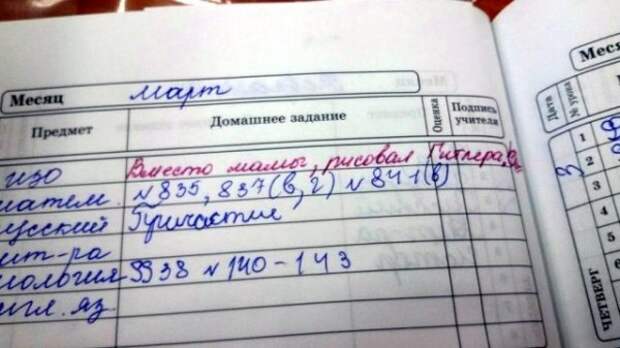 Месяц март
Предмет Домашнее задание Оценка Подпись учителя
изо Вместо мамы, рисовал Гитлера,
матем. №835, 837(в,г) №841(в)
русский Причастие
лит-ра
биология §38 №140-143
англ. яз.
Меся
Дата № урока
1
2
3
3
4
5
6
ЧЕТВЕРГ